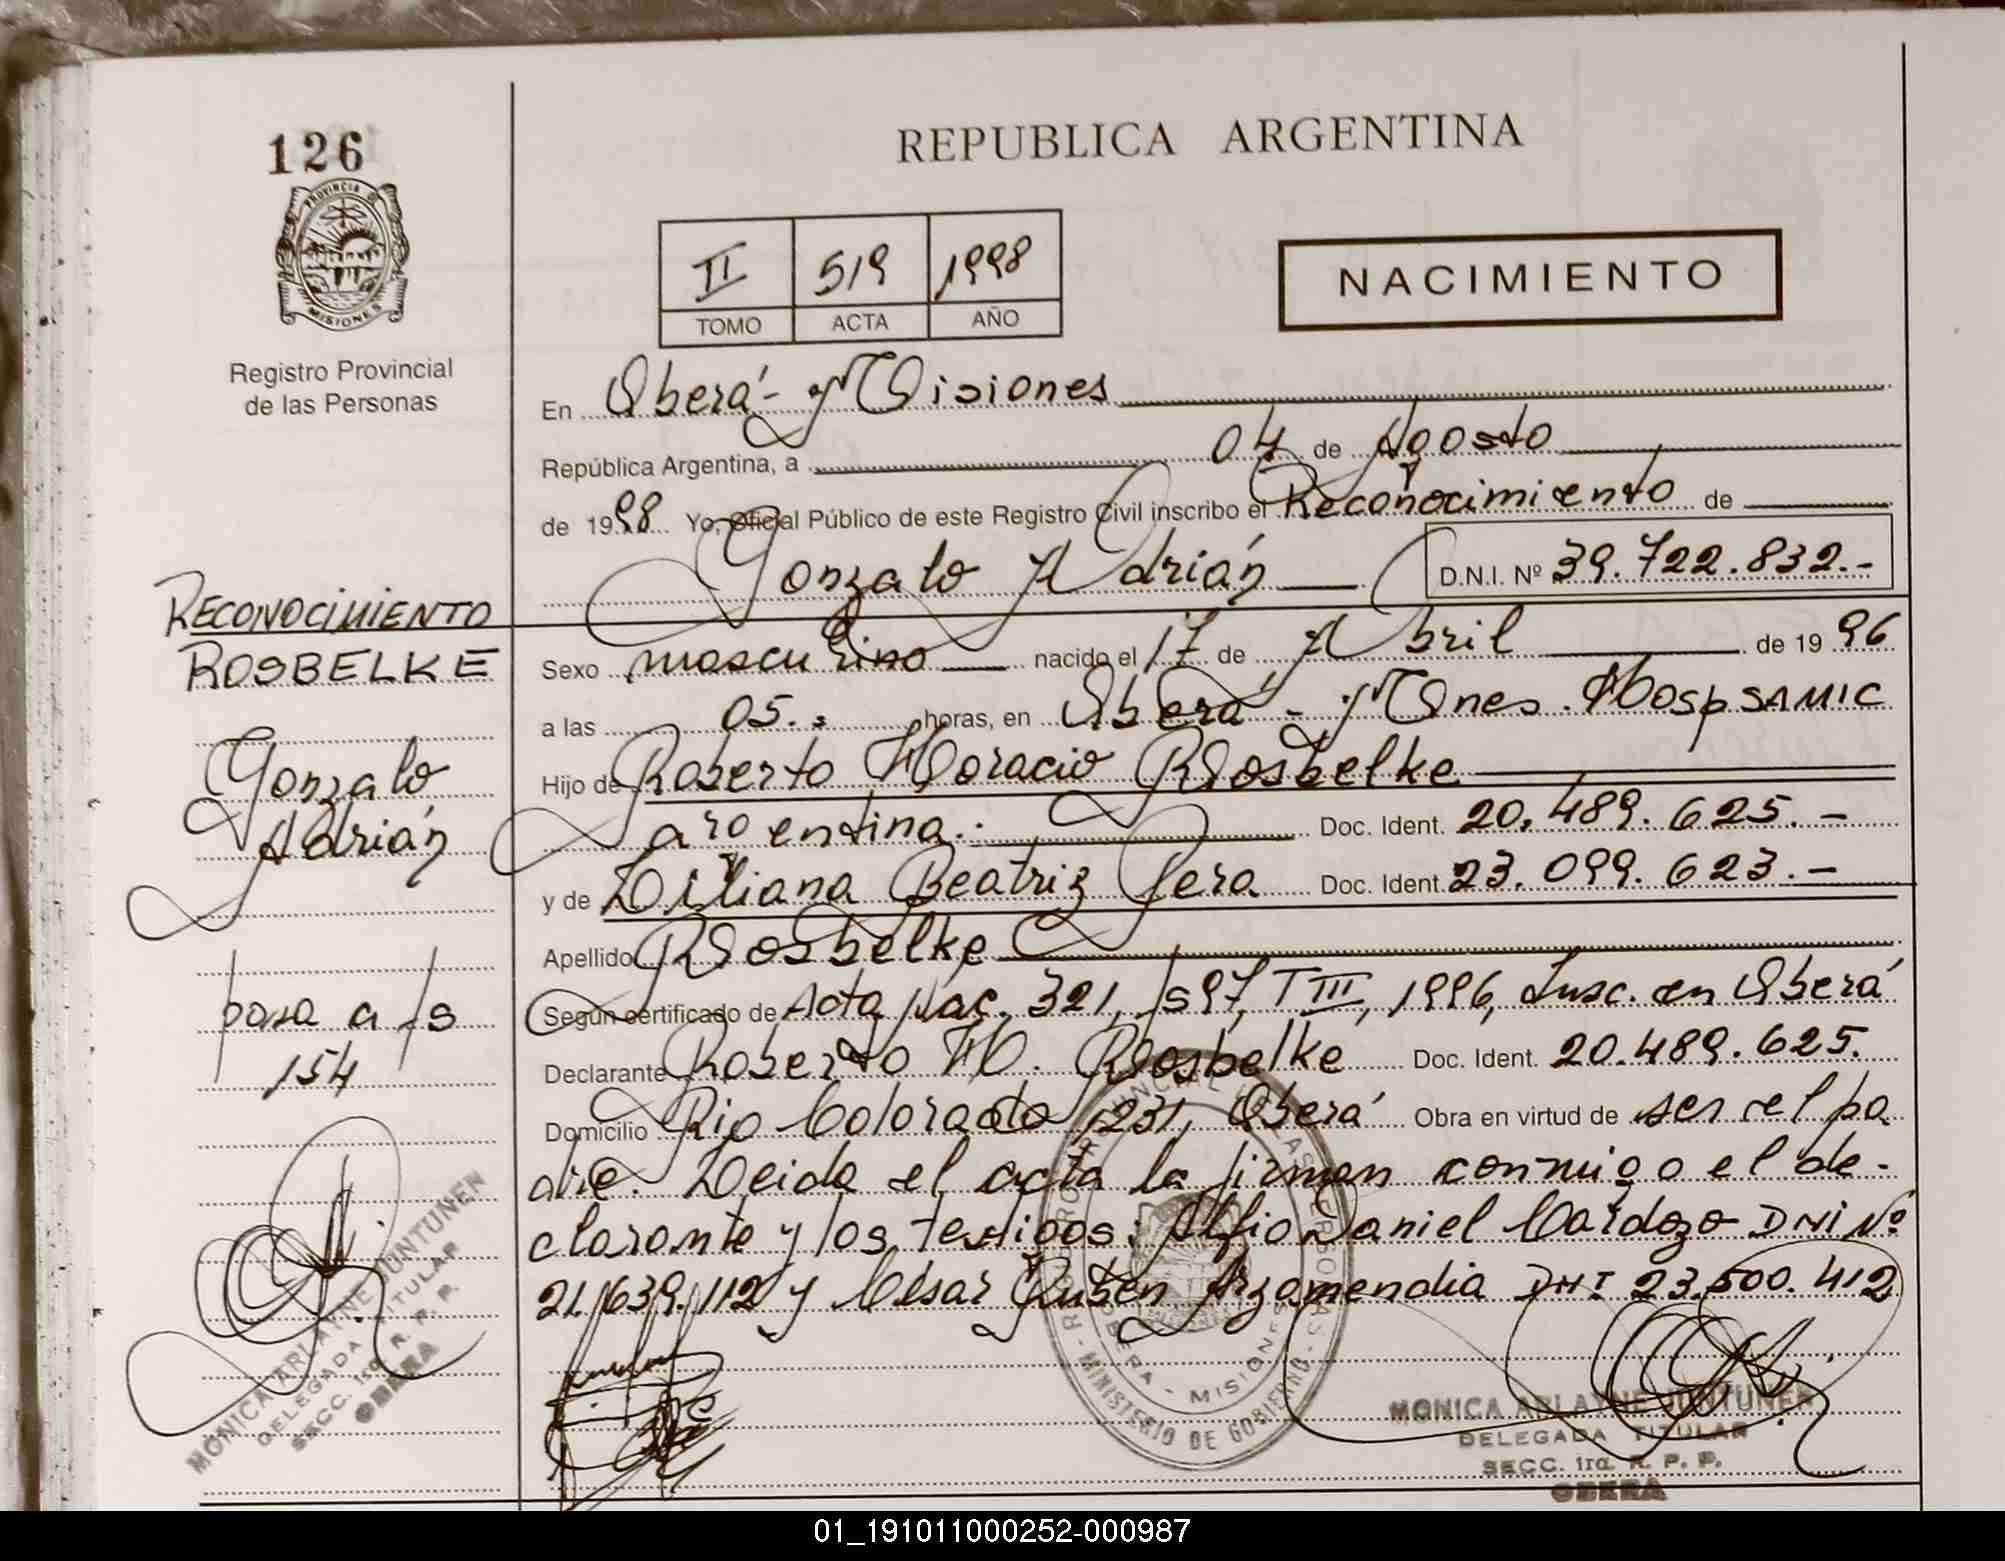 126
REPUBLICA ARGENTINA
PROVINCIA DE
MISIONES
Registro Provincial
de las Personas
II 519 1998
TOMO ACTA AÑO
NACIMIENTO
En Oberá - Misiones
República Argentina, a 04 de Agosto
de 1998 Yo, Oficial Público de este Registro Civil inscribo el Reconocimiento de
Gonzalo Adrián D.N.I. Nº 39.722.832.-
Sexo masculino nacido el 17 de Abril de 1996
a las 05.: horas, en Oberá - Mnes. Hosp SAMIC
Hijo de Roberto Horacio Rosbelke
argentina.: Doc. Ident. 20.489.625.-
y de Liliana Beatriz Pera Doc. Ident. 23.099.623.-
Apellido Rosbelke
Según certificado de Acta Nac. 321, fs 97, T III, 1996, Insc. en Oberá
Declarante Roberto H. Rosbelke Doc. Ident. 20.489.625.
Domicilio Rio Colorado 1231, Oberá Obra en virtud de ser el pa
dre. Leida el acta la firman conmigo el de-
clarante y los testigos: Alfio Daniel Cardozo DNI Nº
21.639.112 y César Rubén Arzamendia DNI 23.500.412
RECONOCIMIENTO
ROSBELKE
Gonzalo
Adrián
pasa a fs
154
MONICA ARLAYNE JUNTUNEN
DELEGADA TITULAR
SECC. 1ra. R. P. P.
OBERA
MINISTERIO DE GOBIERNO
OBERA - MISIONES
MONICA ARLAYNE JUNTUNEN
DELEGADA TITULAR
SECC. 1ra. R. P. P.
OBERA
01_191011000252-000987